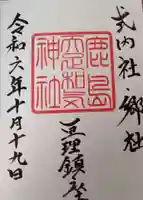 式内社・郷社
鹿島
神社
亘理鎮座
令和六年十月十九日